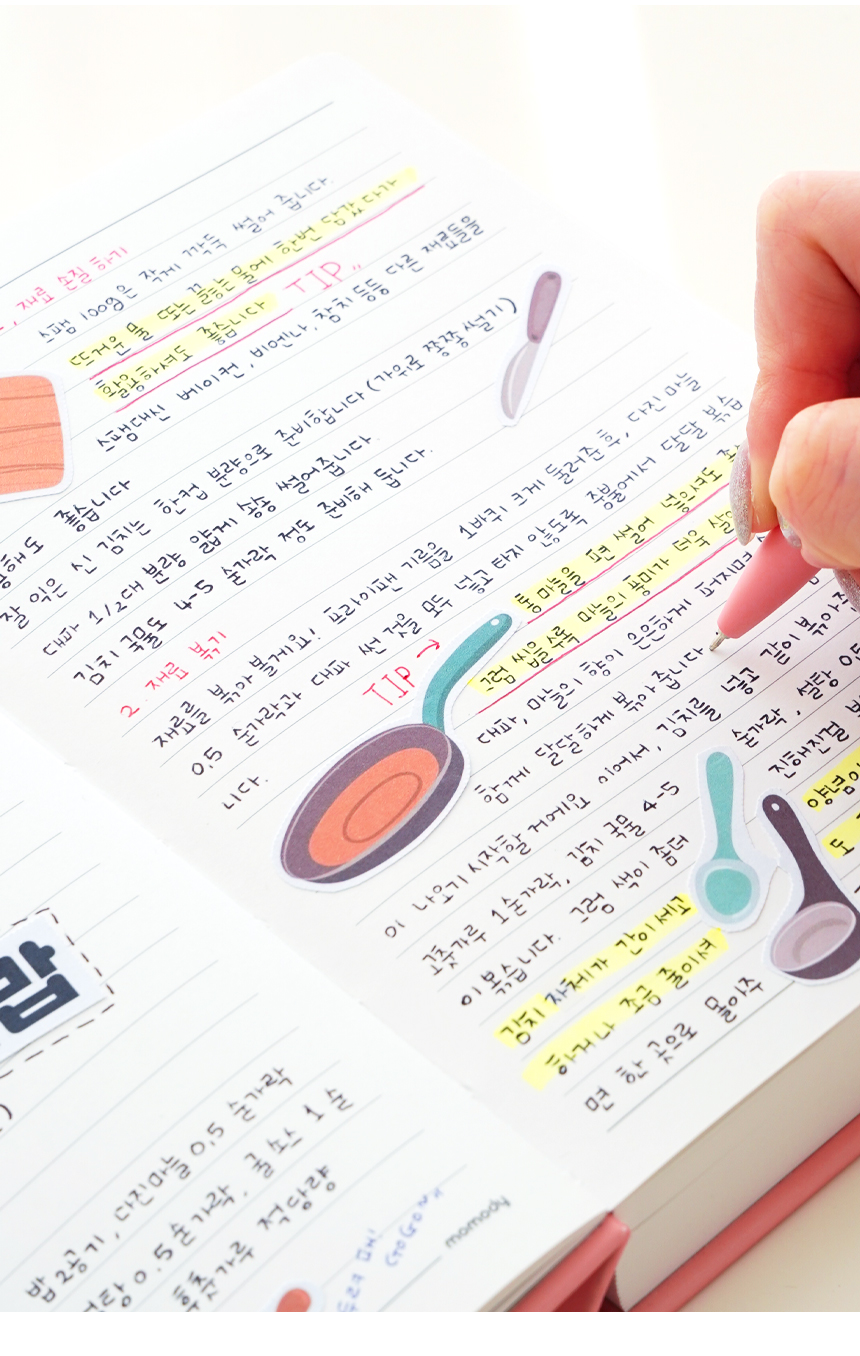 재료 손질 하기
스팸 100g은 작게 깍둑 썰어 줍니다.
뜨거운 물 또는 끓는 물에 한번 담갔다가
활용하셔도 좋습니다 TIP
스팸대신 베이컨, 비엔나, 참치 등등 다른 재료들을
해도 좋습니다
잘 익은 신 김치는 한컵 분량으로 준비합니다 (가위로 쫑쫑 썰기)
대파 1/2대 분량 얇게 송송 썰어줍니다.
김치 국물도 4-5 숟가락 정도 준비해 둡니다.
2. 재료 볶기
재료를 볶아 볼게요! 프라이팬 기름을 1바퀴 크게 둘러준 후, 다진 마늘
0.5 숟가락과 대파 썬 것을 모두 넣고 타지 않도록 중불에서 달달 볶습
니다.
TIP → 통마늘을 편 썰어 넣으셔도
그럼 씹을수록 마늘의 풍미가 더욱
대파, 마늘의 향이 은은하게 퍼지면
함께 달달하게 볶아 줍니다
이 나오기 시작할 거예요 이어서, 김치를 넣고 같이 볶아
고춧가루 1숟가락, 김치 국물 4-5 숟가락, 설탕
이 볶습니다. 그럼 색이 좀더 진해진걸
김치 자체가 간이 세고 양념이
하거나 조금 줄이셔도
면 한 곳으로 몰아주
밥
밥 2공기, 다진마늘 0.5 숟가락
0.5 숟가락, 굴소스 1 숟
후춧가루 적당량
GOGO
momody